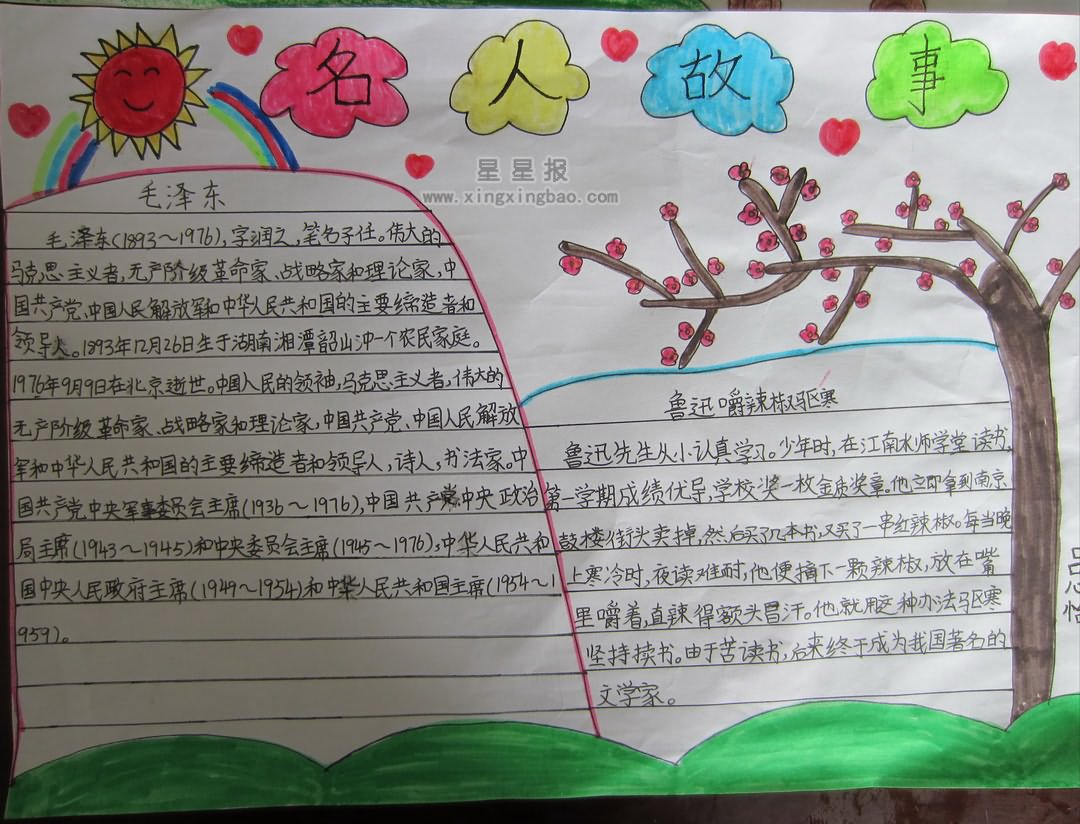 名人故事
星星报
www.xingxingbao.com
毛泽东
毛泽东(1893～1976),字润之,笔名子任。伟大的
马克思主义者,无产阶级革命家、战略家和理论家,中
国共产党、中国人民解放军和中华人民共和国的主要缔造者和
领导人。1893年12月26日生于湖南湘潭韶山冲一个农民家庭。
1976年9月9日在北京逝世。中国人民的领袖,马克思主义者,伟大的
无产阶级革命家、战略家和理论家,中国共产党、中国人民解放
军和中华人民共和国的主要缔造者和领导人,诗人,书法家。中
国共产党中央军事委员会主席(1936～1976),中国共产党中央政治
局主席(1943～1945)和中央委员会主席(1945～1976),中华人民共和
国中央人民政府主席(1949～1954)和中华人民共和国主席(1954～1
959)。
鲁迅嚼辣椒驱寒
鲁迅先生从小认真学习。少年时,在江南水师学堂读书,
第一学期成绩优导,学校奖一枚金质奖章。他立即拿到南京
鼓楼街头卖掉,然后买了几本书,又买了一串红辣椒。每当晚
上寒冷时,夜读难耐,他便摘下一颗辣椒,放在嘴
里嚼着,直辣得额头冒汗。他就用这种办法驱寒
坚持读书。由于苦读书,后来终于成为我国著名的
文学家。